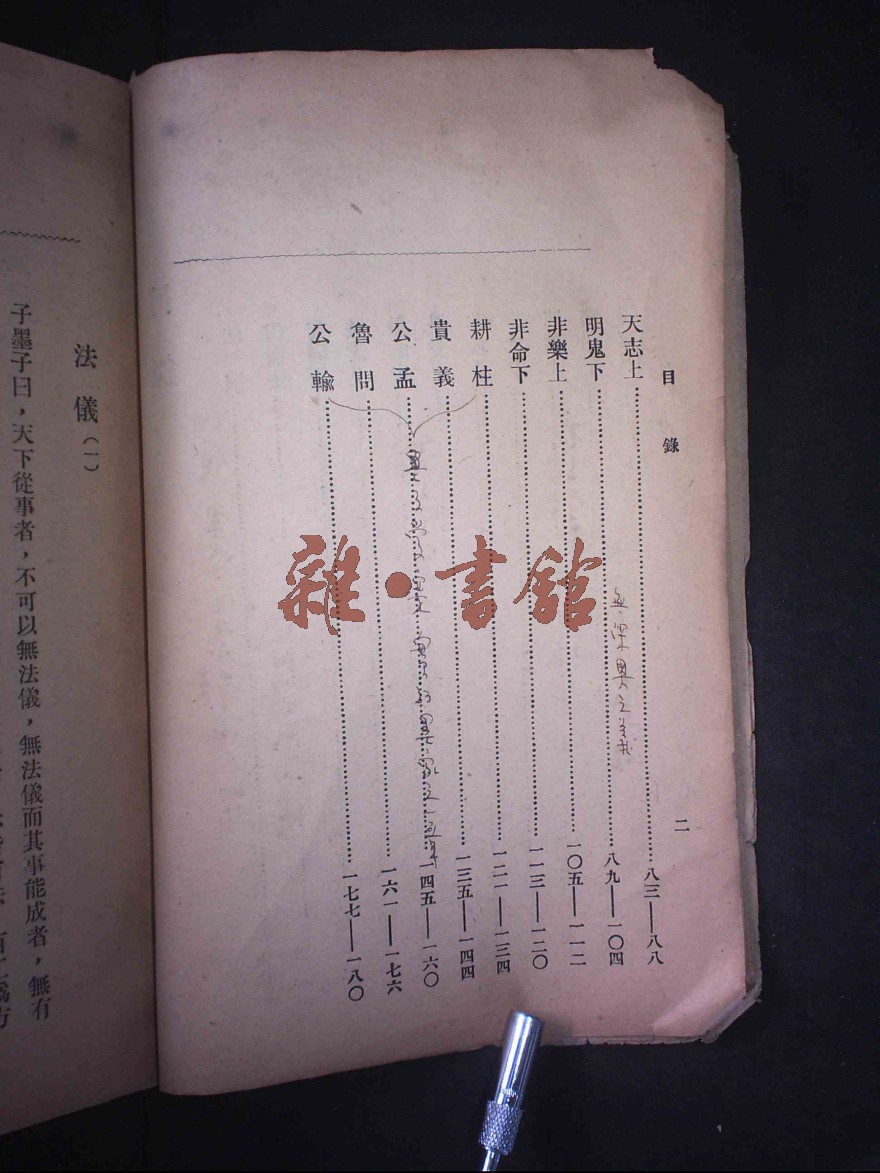 目錄 二
天志上……八三——八八
明鬼下……八九——一〇四
非樂上……一〇五——一一二
非命下……一一三——一二〇
耕柱……一二一——一三四
貴義……一三五——一四四
公孟……一四五——一六〇
魯問……一六一——一七六
公輸……一七七——一八〇
雜·書館
法儀(一)
子墨子曰，天下從事者，不可以無法儀，無法儀而其事能成者，無有